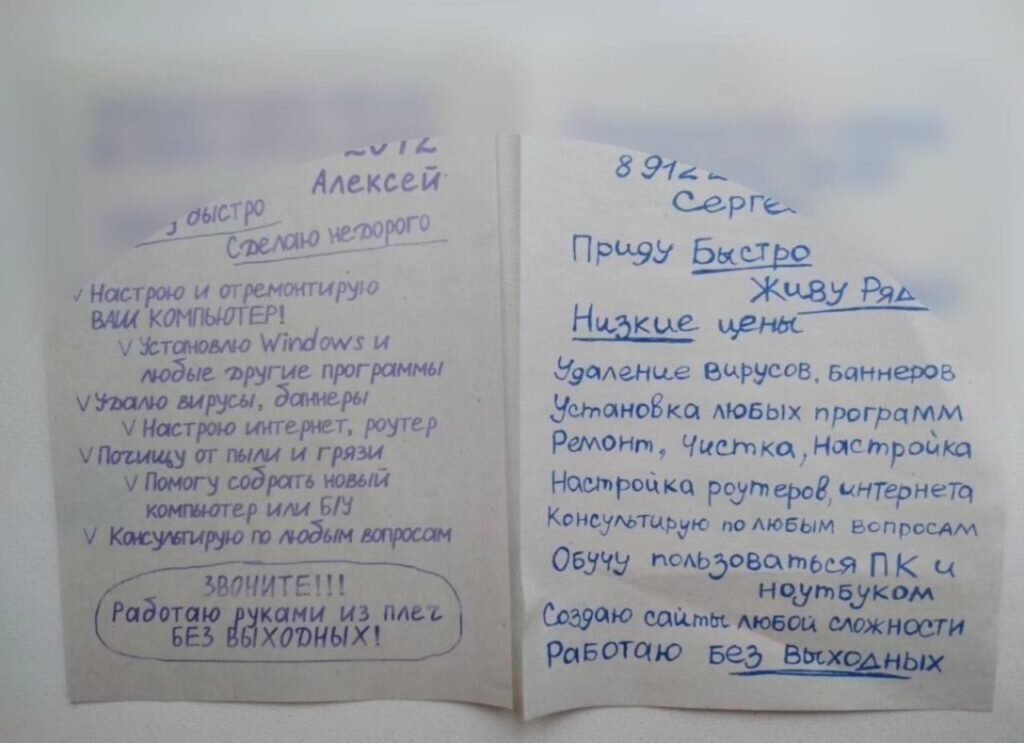 2012
Алексей
быстро
Сделаю недорого
√ Настрою и отремонтирую
ВАШ КОМПЬЮТЕР!
√ Установлю Windows и
любые другие программы
√ Удалю вирусы, баннеры
√ Настрою интернет, роутер
√ Почищу от пыли и грязи
√ Помогу собрать новый
компьютер или Б/У
√ Консультирую по любым вопросам
ЗВОНИТЕ!!!
Работаю руками из плеч
БЕЗ ВЫХОДНЫХ!
8 912
Серге
Приду Быстро
Живу Ряд
Низкие цены
Удаление вирусов, баннеров
Установка любых программ
Ремонт, Чистка, Настройка
Настройка роутеров, интернета
Консультирую по любым вопросам
Обучу пользоваться ПК и
ноутбуком
Создаю сайты любой сложности
Работаю без выходных